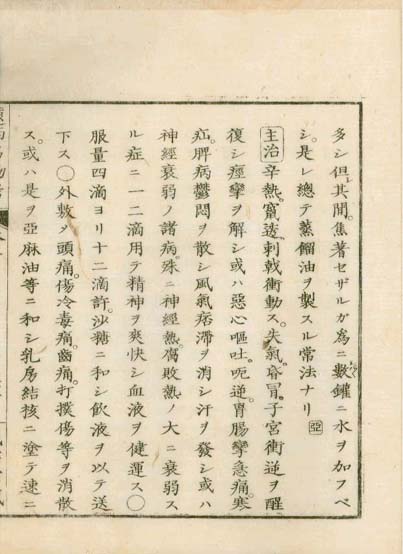 多シ但其間焦著セザルガ為ニ數罐ニ水ヲ加フベ
シ是レ總テ蒸餾油ヲ製スル常法ナリ 亞
主治 辛熱竄透刺戟衝動ス失氣昏冒子宮衝逆ヲ醒
復シ痙攣ヲ解シ或ハ惡心嘔吐呃逆胃腸攣急痛寒
疝脾病鬱悶ヲ散シ風氣痞滯ヲ消シ汗ヲ發シ或ハ
神經衰弱ノ諸病殊ニ神經熱腐敗熱ノ大ニ衰弱ス
ル症ニ一二滴用テ精神ヲ爽快シ血液ヲ健運ス○
服量四滴ヨリ十二滴許沙糖ニ和シ飲液ヲ以テ送
下ス○外敷メ頭痛傷冷毒痛齒痛打撲傷等ヲ消散
ス或ハ是ヲ亞麻油等ニ和シ乳房結核ニ塗テ速ニ